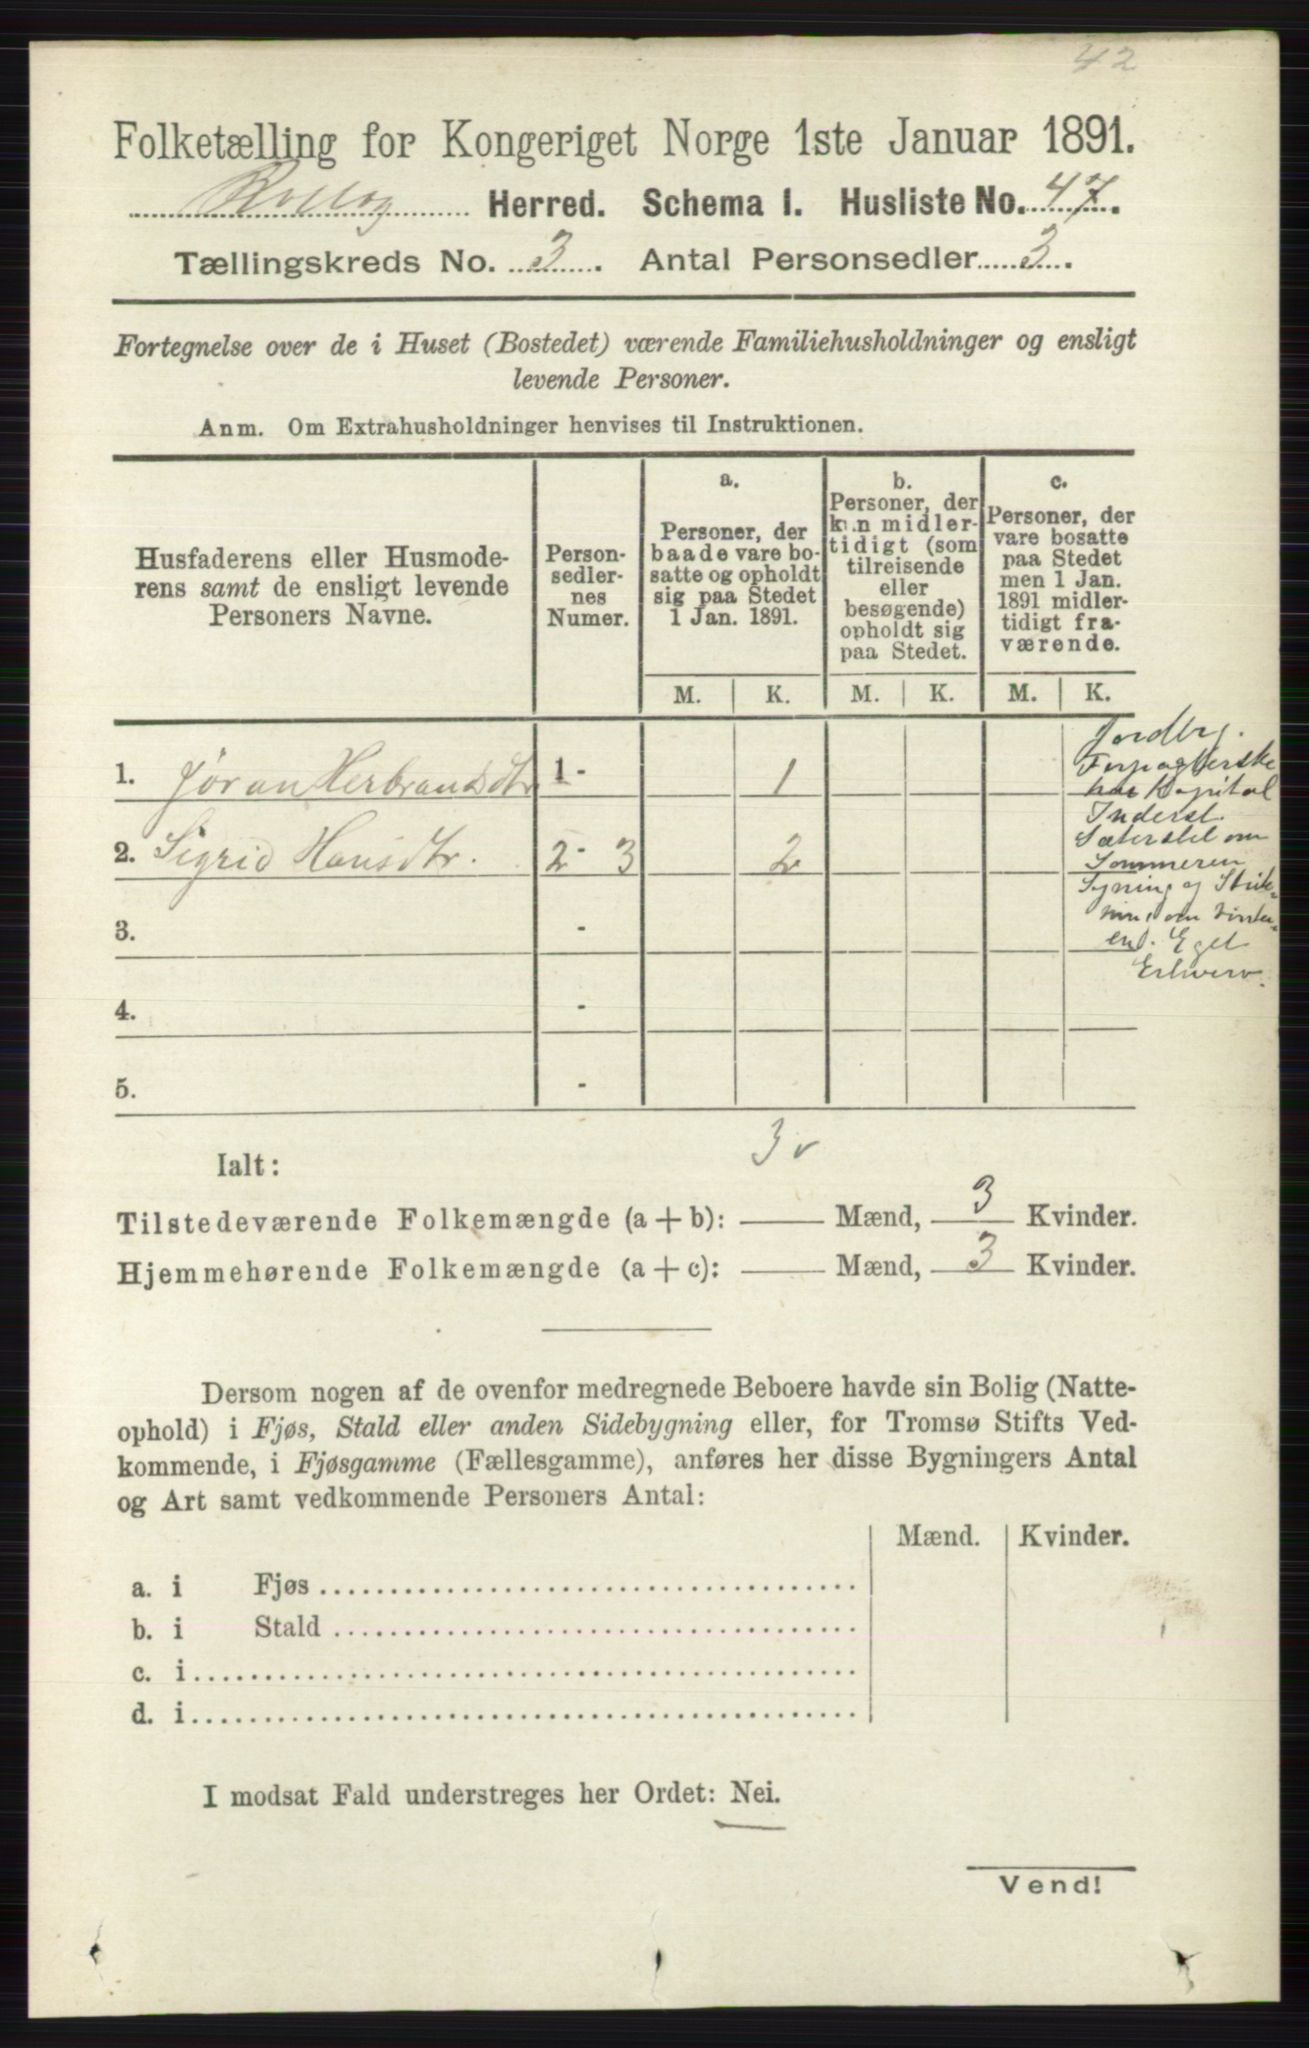 42
Folketælling for Kongeriget Norge 1ste Januar 1891.
Rollag Herred. Schema 1. Husliste No. 47.
Tællingskreds No. 3. Antal Personsedler 3.
Fortegnelse over de i Huset (Bostedet) værende Familiehusholdninger og ensligt
levende Personer.
Anm. Om Extrahusholdninger henvises til Instruktionen.
Husfaderens eller Husmode-
rens samt de ensligt levende
Personers Navne.
Person-
sedler-
nes
Numer.
a.
Personer, der
baade vare bo-
satte og opholdt
sig paa Stedet
1 Jan. 1891.
b.
Personer, der
kun midler-
tidigt (som
tilreisende
eller
besøgende)
opholdt sig
paa Stedet.
c.
Personer, der
vare bosatte
paa Stedet
men 1 Jan.
1891 midler-
tidigt fra-
værende.
M. K. M. K. M. K.
1. Jøran Herbrandsdtr 1 - 1
2. Sigrid Hansdtr. 2 - 3 2
3. -
4. -
5. -
Jordbr.
Forpagterske
har Kapital
Inderst.
Sæterstel om
Sommeren
Syning og Strik-
ning om Vinter-
en. Eget
Erhverv.
3 v
Ialt:
Tilstedeværende Folkemængde (a + b): — Mænd, 3 Kvinder.
Hjemmehørende Folkemængde (a + c): — Mænd, 3 Kvinder.
Dersom nogen af de ovenfor medregnede Beboere havde sin Bolig (Natte-
ophold) i Fjøs, Stald eller anden Sidebygning eller, for Tromsø Stifts Ved-
kommende, i Fjøsgamme (Fællesgamme), anføres her disse Bygningers Antal
og Art samt vedkommende Personers Antal:
Mænd. Kvinder.
a. i Fjøs
b. i Stald
c. i
d. i
I modsat Fald understreges her Ordet: Nei.
Vend!